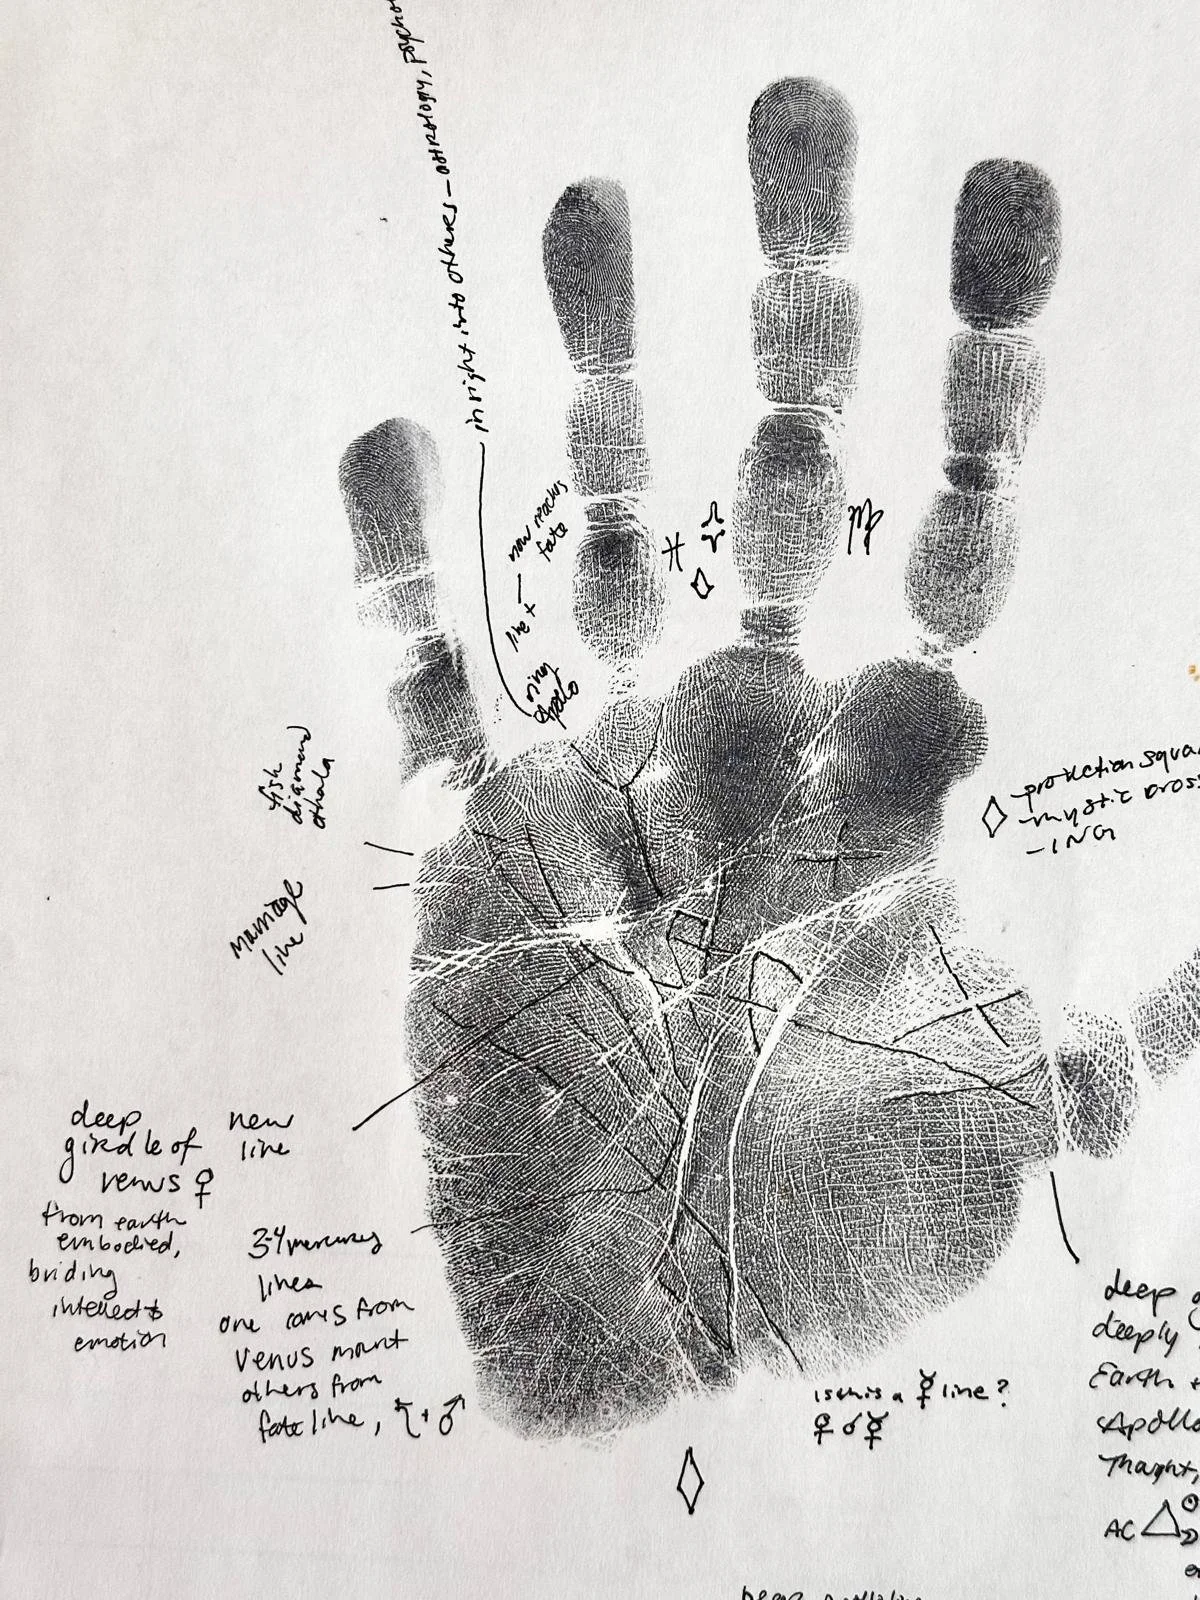 insight into others – astrology, psycho
now reaches
fate
line +
ring
Apollo
♓
♍
fish
diamond
othala
marriage
line
protection square
- mystic cross
- ING
deep
girdle of
venus ♀
from earth
embodied,
briding
intellect &
emotion
new
line
3-4 mercury
lines
one comes from
venus mount
others from
fate line, ♄ + ♂
is this a ☿ line?
♀ ♂ ☿
deep
deeply
Earth +
Apollo
Thought,
AC △